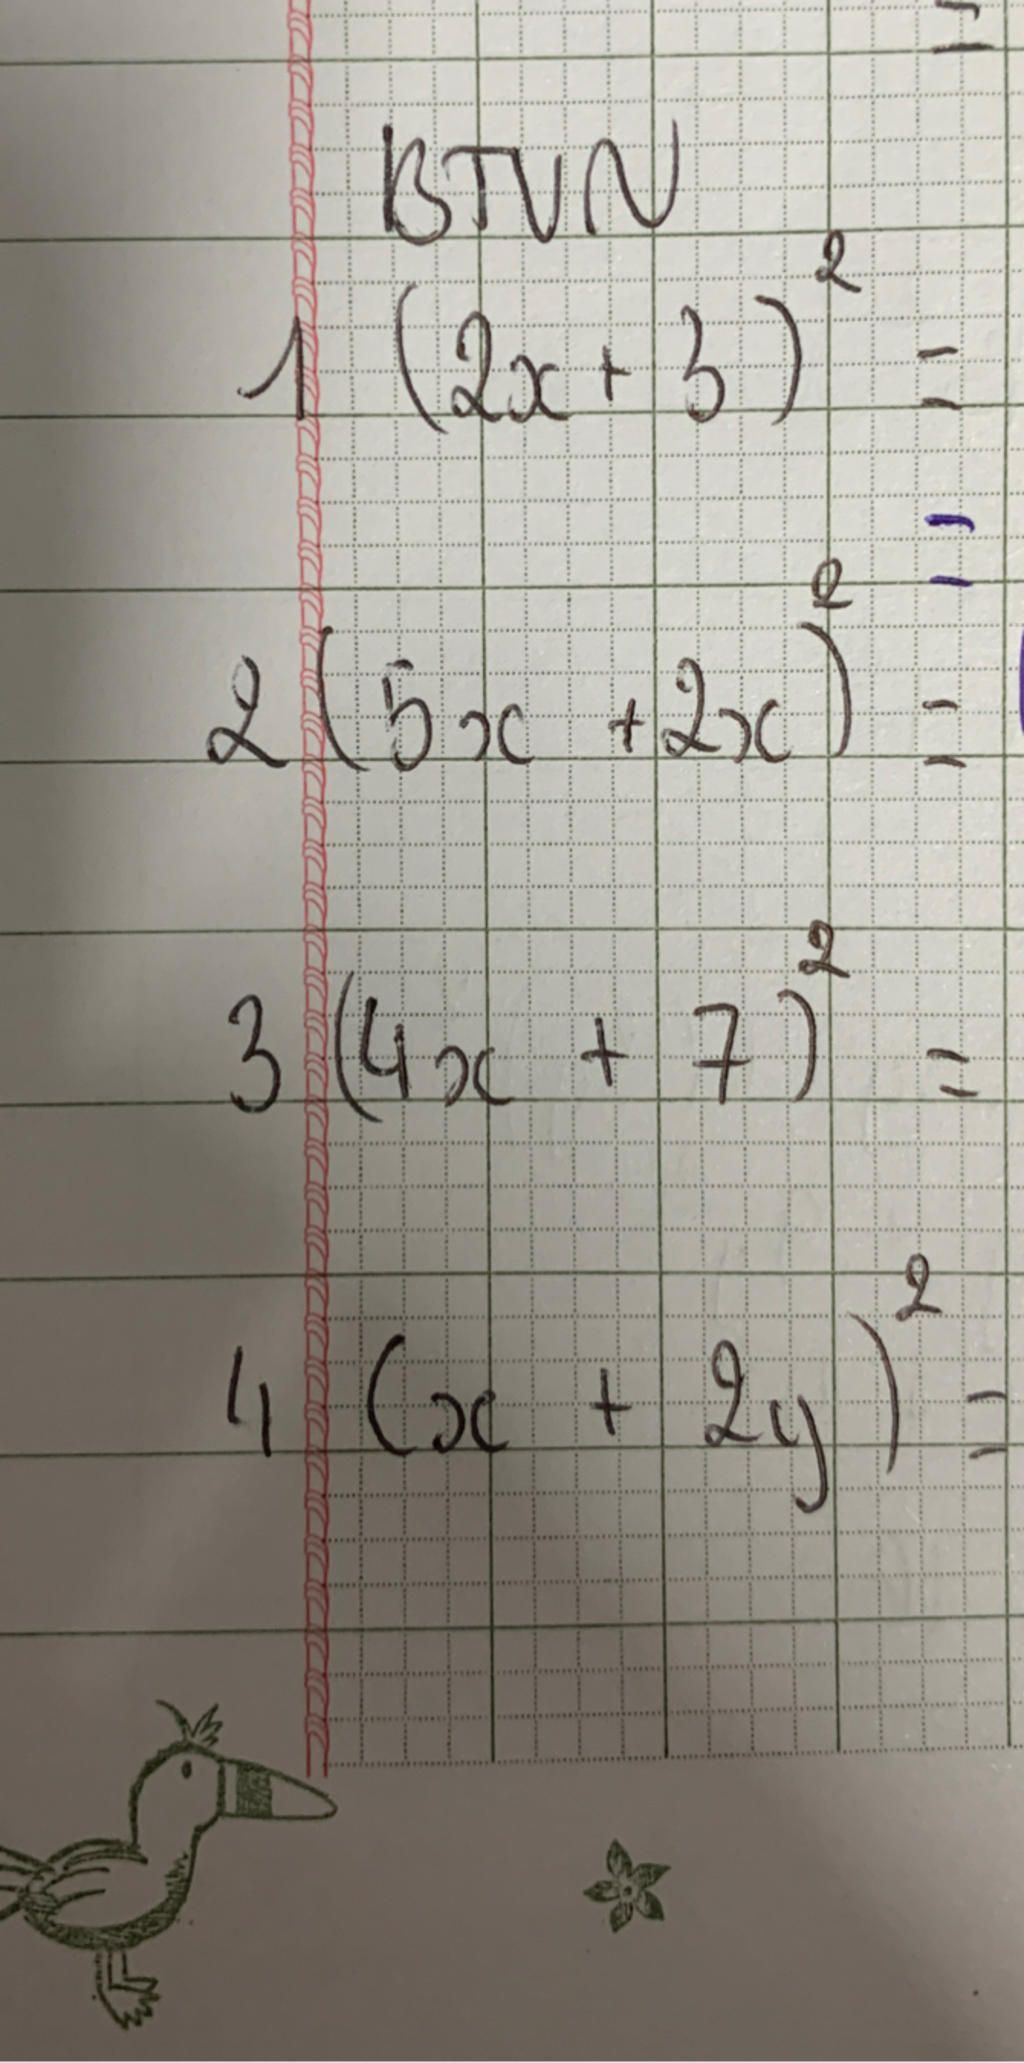 =
BTVN
1 (2x + 3)² =
=
2 (5x + 2x)² =
3 (4x + 7)² =
4 (x + 2y)² =